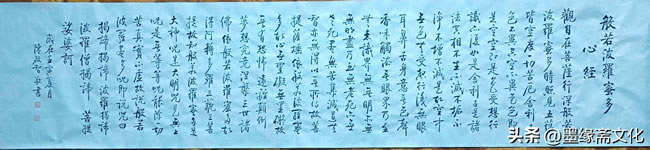 般若波羅蜜多
心經
觀自在菩薩行深般若
波羅蜜多時照見五蘊
皆空度一切苦厄舍利子
色不異空空不異色色即
是空空即是色受想行
識亦復如是舍利子是諸
法空相不生不滅不垢不
淨不增不減是故空中
無色無受想行識無眼
耳鼻舌身意無色聲
香味觸法無眼界乃至
無意識界無無明亦無
無明盡乃至無老死亦無
老死盡無苦集滅道無
智亦無得以無所得故菩
提薩埵依般若波羅蜜
多故心無罣礙無罣礙故
無有恐怖遠離顛倒
夢想究竟涅槃三世諸
佛依般若波羅蜜多故
得阿耨多羅三藐三菩
提故知般若波羅蜜多是
大神咒是大明咒是無上
咒是無等等咒能除一切
苦真實不虛故說般若
波羅蜜多咒即說咒曰
揭諦揭諦 波羅揭諦
波羅僧揭諦 菩提
娑婆訶
歲在壬寅夏月
書
头条 @墨缘斋文化